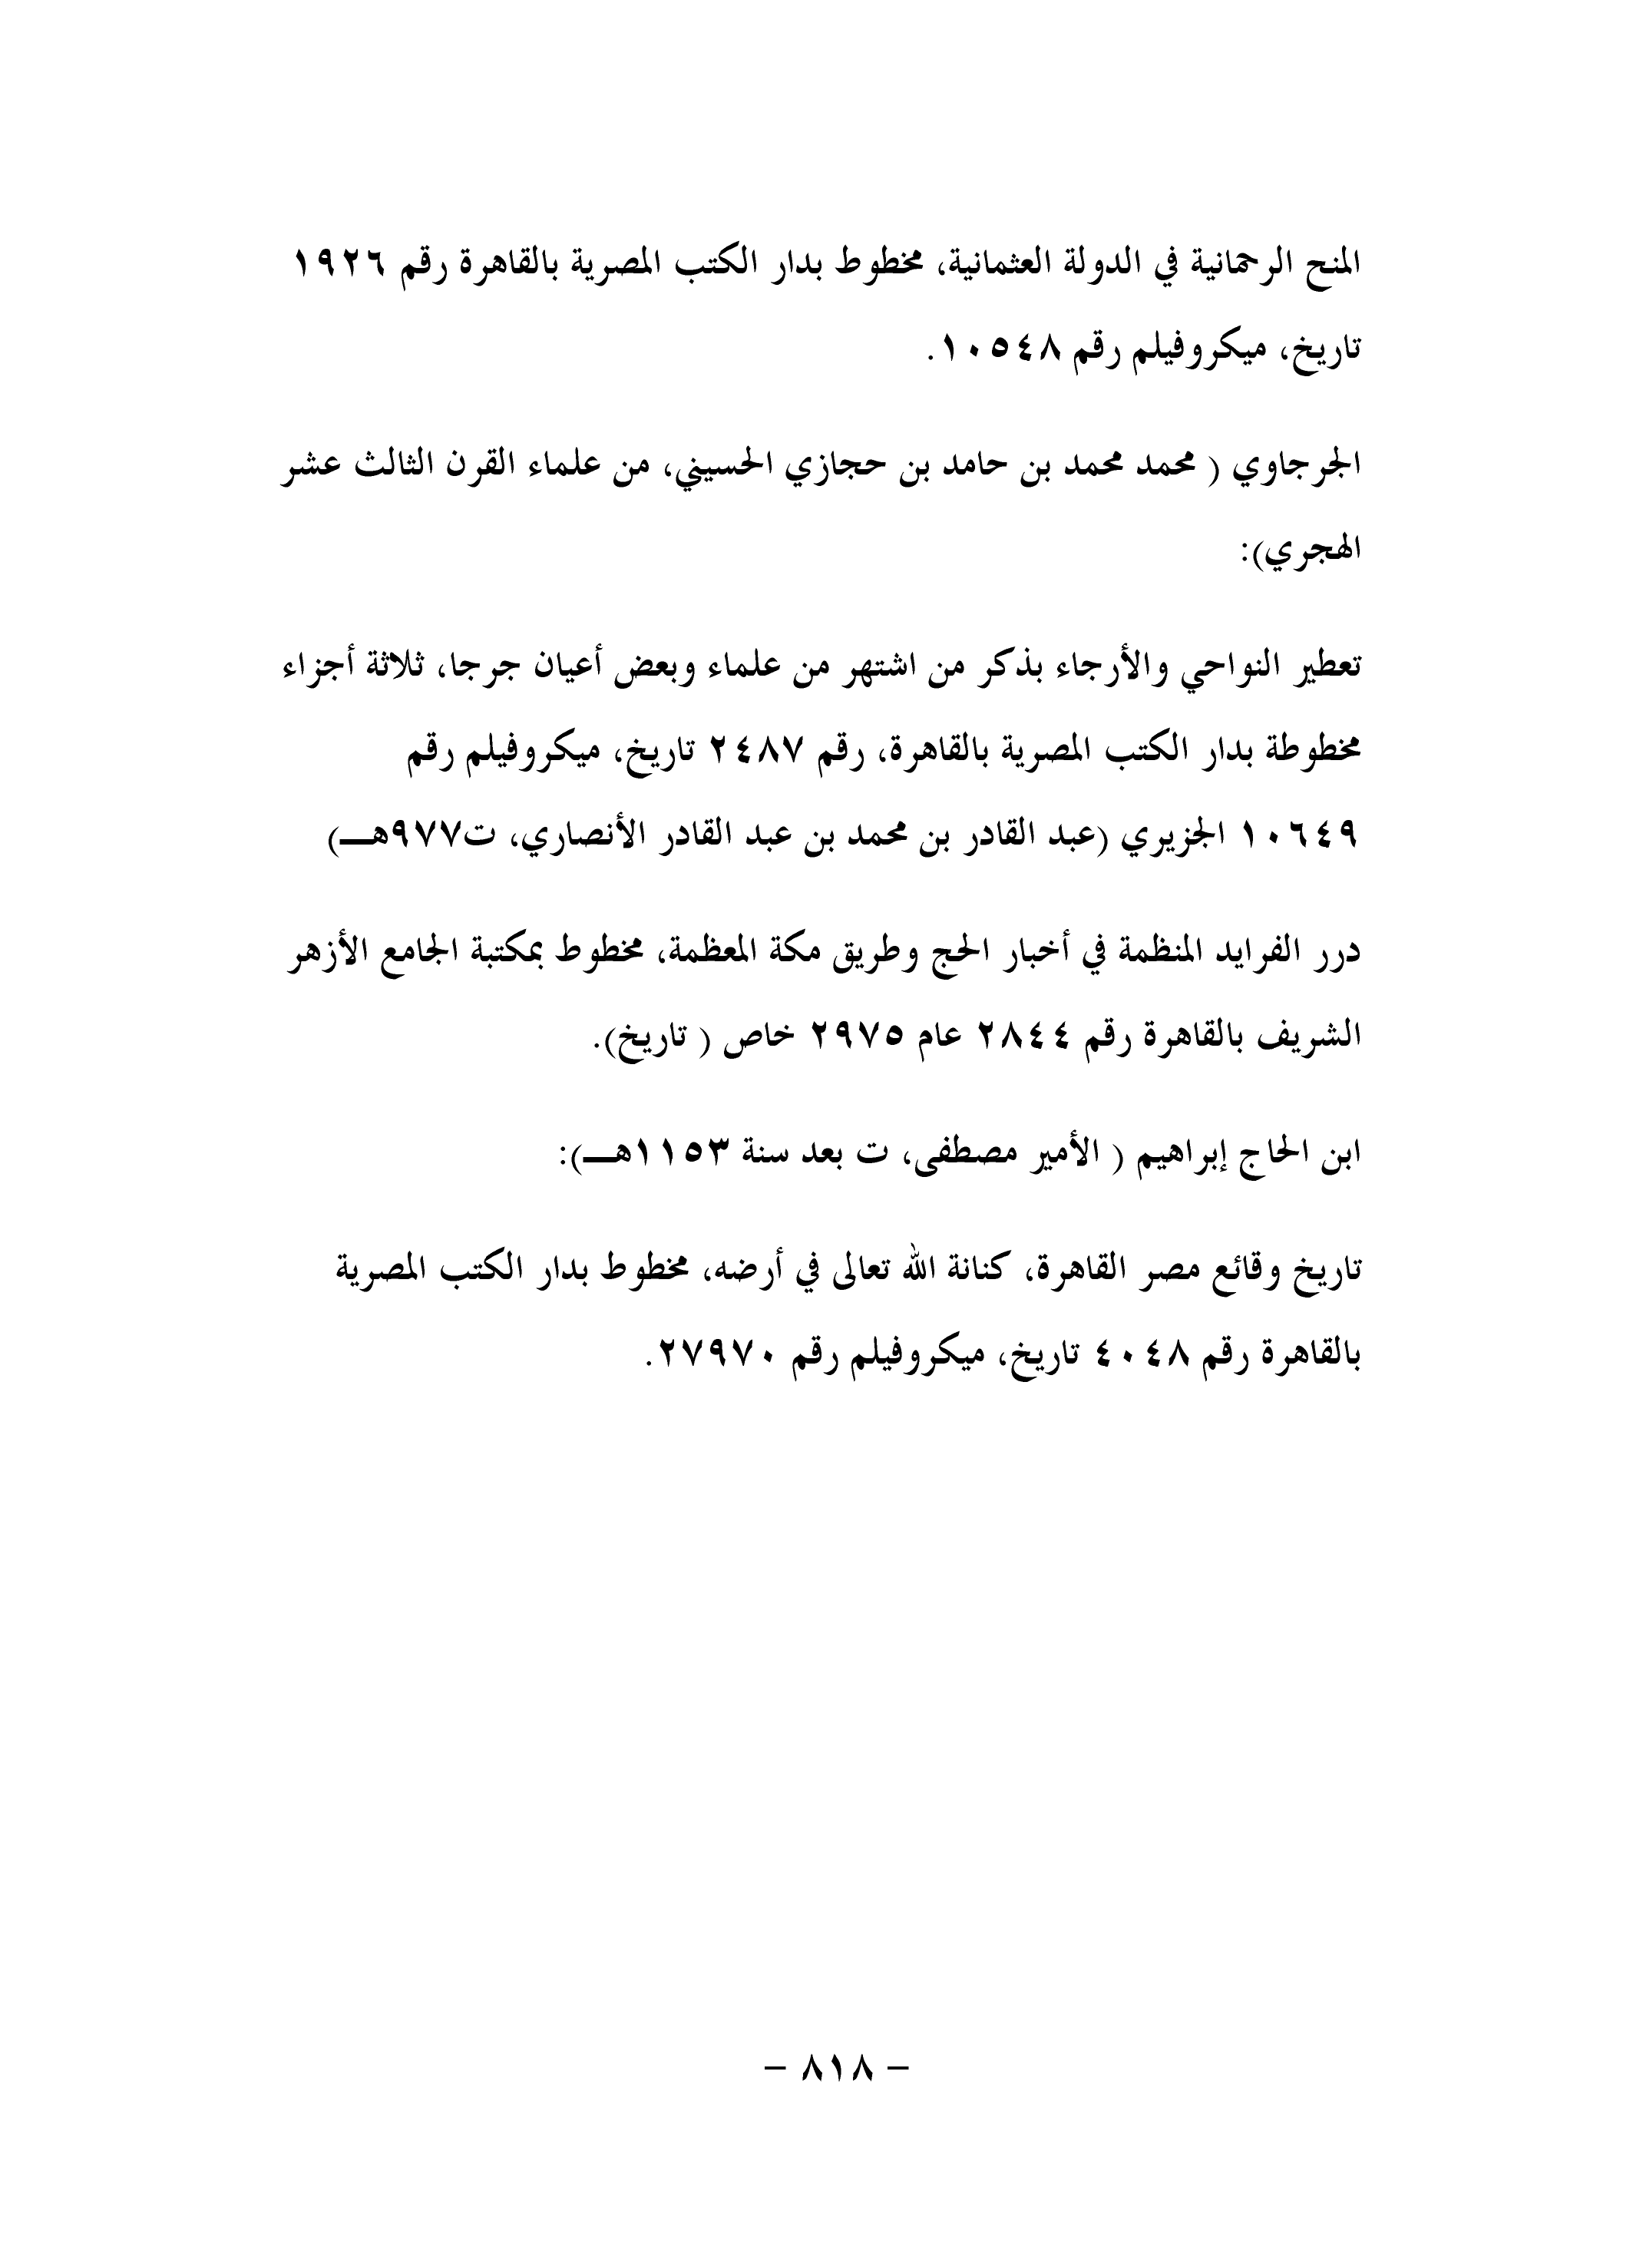 المنح الرحمانية في الدولة العثمانية، مخطوط بدار الكتب المصرية بالقاهرة رقم ١٩٢٦
تاريخ، ميكروفيلم رقم ١٠٥٤٨.
الجرجاوي ( محمد محمد بن حامد بن حجازي الحسيني، من علماء القرن الثالث عشر
الهجري):
تعطير النواحي والأرجاء بذكر من اشتهر من علماء وبعض أعيان جرجا، ثلاثة أجزاء
مخطوطة بدار الكتب المصرية بالقاهرة، رقم ٢٤٨٧ تاريخ، ميكروفيلم رقم
١٠٦٤٩ الجزيري (عبد القادر بن محمد بن عبد القادر الأنصاري، ت٩٧٧هـــ)
درر الفرايد المنظمة في أخبار الحج وطريق مكة المعظمة، مخطوط بمكتبة الجامع الأزهر
الشريف بالقاهرة رقم ٢٨٤٤ عام ٢٩٧٥ خاص ( تاريخ).
ابن الحاج إبراهيم ( الأمير مصطفى، ت بعد سنة ١١٥٣هـــ):
تاريخ وقائع مصر القاهرة، كنانة الله تعالى في أرضه، مخطوط بدار الكتب المصرية
بالقاهرة رقم ٤٠٤٨ تاريخ، ميكروفيلم رقم ٢٧٩٧٠.
– ٨١٨ –